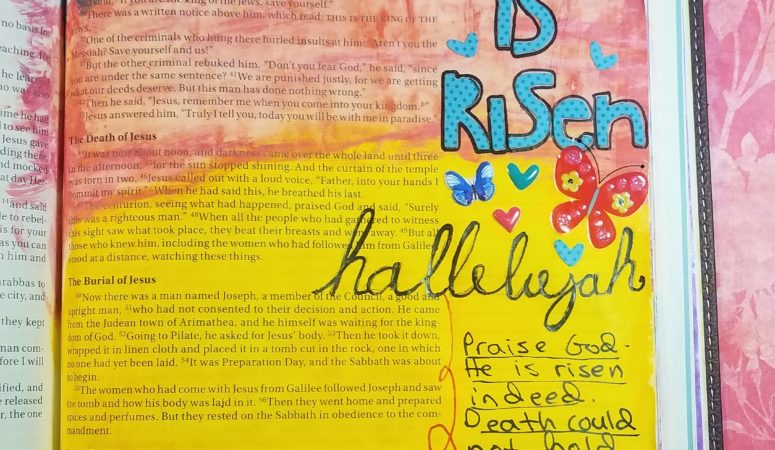 no basis fo
eaching. He
he learn
who was also
time he had
d to see him
Jesus gave
nding there,
and mocked
at day Her
14 and said
le to rebel.
is for your
as you can
him and
arabbas to
e city, and
they kept
man com-
fore I will
ified, and
e released
r, the one
said, "If you are the king of the Jews, save yourself."
There was a written notice above him, which read: THIS IS THE KING OF THE
JEWS.
"One of the criminals who hung there hurled insults at him: "Aren't you the
Messiah? Save yourself and us!"
But the other criminal rebuked him. "Don't you fear God," he said, "since
you are under the same sentence? 41We are punished justly, for we are getting
what our deeds deserve. But this man has done nothing wrong."
Then he said, "Jesus, remember me when you come into your kingdom."
Jesus answered him, "Truly I tell you, today you will be with me in paradise."
The Death of Jesus
44It was now about noon, and darkness came over the whole land until three
in the afternoon, 45for the sun stopped shining. And the curtain of the temple
was torn in two. 46Jesus called out with a loud voice, "Father, into your hands I
commit my spirit." When he had said this, he breathed his last.
The centurion, seeing what had happened, praised God and said, "Surely
this was a righteous man." 48When all the people who had gathered to witness
this sight saw what took place, they beat their breasts and went away. 49But all
those who knew him, including the women who had followed him from Galilee,
stood at a distance, watching these things.
The Burial of Jesus
50Now there was a man named Joseph, a member of the Council, a good and
upright man, 51who had not consented to their decision and action. He came
from the Judean town of Arimathea, and he himself was waiting for the king-
dom of God. 52Going to Pilate, he asked for Jesus' body. 53Then he took it down,
wrapped it in linen cloth and placed it in a tomb cut in the rock, one in which
no one had yet been laid. 54It was Preparation Day, and the Sabbath was about
to begin.
55The women who had come with Jesus from Galilee followed Joseph and saw
the tomb and how his body was laid in it. 56Then they went home and prepared
spices and perfumes. But they rested on the Sabbath in obedience to the com-
mandment.
IS
RISEn
hallelujah
Praise God-
He is risen
indeed.
Death could
not hold